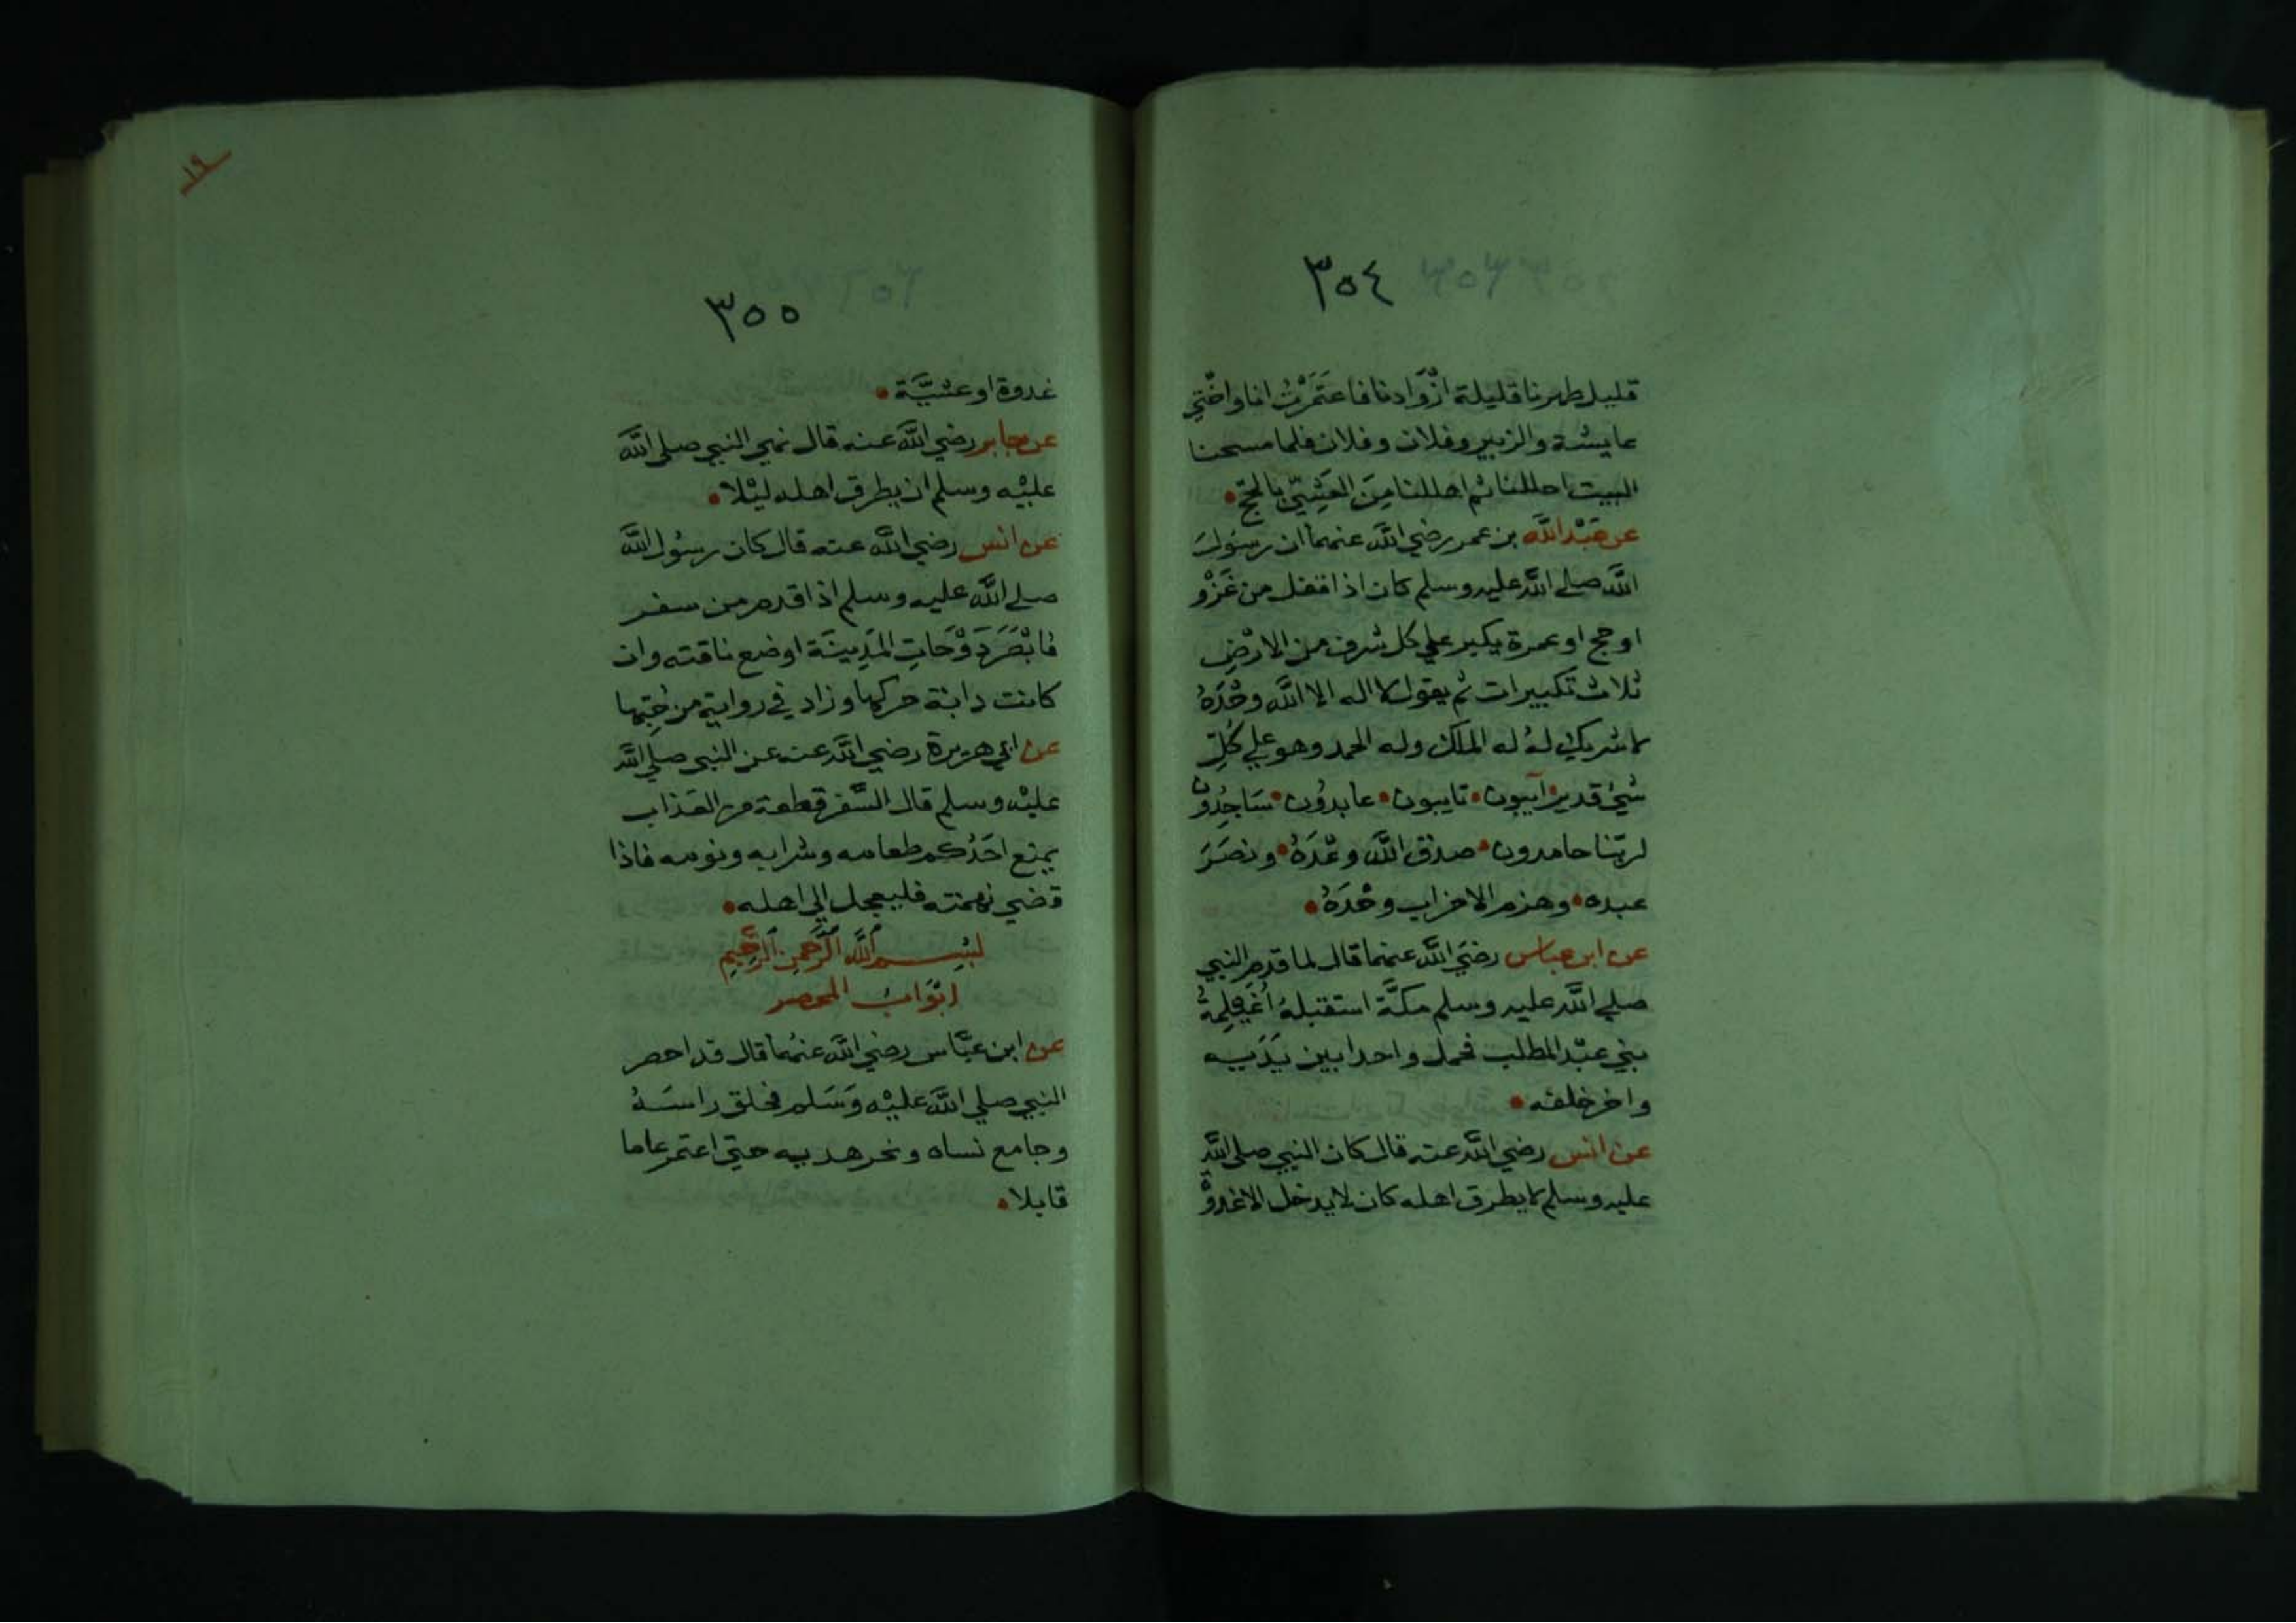 ٣٥٤
قليل ظهرنا قليلة ازْوَادنا فاعتَمَرْتُ انا واخْتِي
عايشة والزبير وفلان وفلان فلما مسحنا
البيت احللنا ثم اهللنا مِنَ العَشِيّ بالحجّ •
عن عَبْد الله بن عمر رضي الله عنهما ان رسُولَ
الله صلى الله عليه وسلم كان اذا قفل من غَزْو
او حج او عمرة يكبر علي كل شرف من الارْضِ
ثلاث تكبيرات ثم يقول لا اله الا الله وحْدَهُ
لا شريك لهُ له الملك وله الحمد وهو علي كُلِّ
شيْ قدير آيبون • تايبون • عابدُون • سَاجِدُونَ
لربّنا حامدون • صدق الله وعْدَهُ • ونصَرَ
عبده • وهزم الاحزاب وحْدَهُ •
عن ابن عباس رضيَ الله عنهما قال لما قدم النبي
صلي الله عليه وسلم مكَّة استقبلهُ اُغَيْلِمَةُ
بني عبْد المطلب فحمل واحدا بين يَدَيه
واخر خلفه •
عن انس رضي الله عنه قال كان النبي صلى الله
عليه وسلم لا يطرق اهله كان لا يدخل الا غدوةً
١٩
٣٥٥
غدوة او عشيَّة •
عن جابر رضي الله عنه قال نهي النبي صلى الله
عليْه وسلم ان يطرق اهله ليْلا •
عن انس رضي الله عنه قال كان رسُول الله
صلى الله عليه وسلم اذا قدم من سفر
فابْصَرَ دَوْحَاتِ المَدِينَة اوضع ناقته وان
كانت دابة حركها وزاد في رواية من حُبِّها
عن ابي هريرة رضي الله عنه عن النبي صلي الله
عليْه وسلم قال السَّفر قطعة من العَذاب
يمنع احَدُكم طعامه وشرابه ونومه فاذا
قضي نهمته فليعجل الي اهله •
بِسْم الله الرَّحمن الرَّحِيمِ
ابْوَابُ المحصر
عن ابن عبَّاس رضي الله عنهُما قال قد احصر
النبي صلي الله عليْه وَسَلم فحلق راسَهُ
وجامع نساه ونحر هديه حتي اعتمر عاما
قابلا •